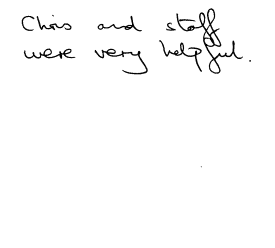 Chris and staff
were very helpful.